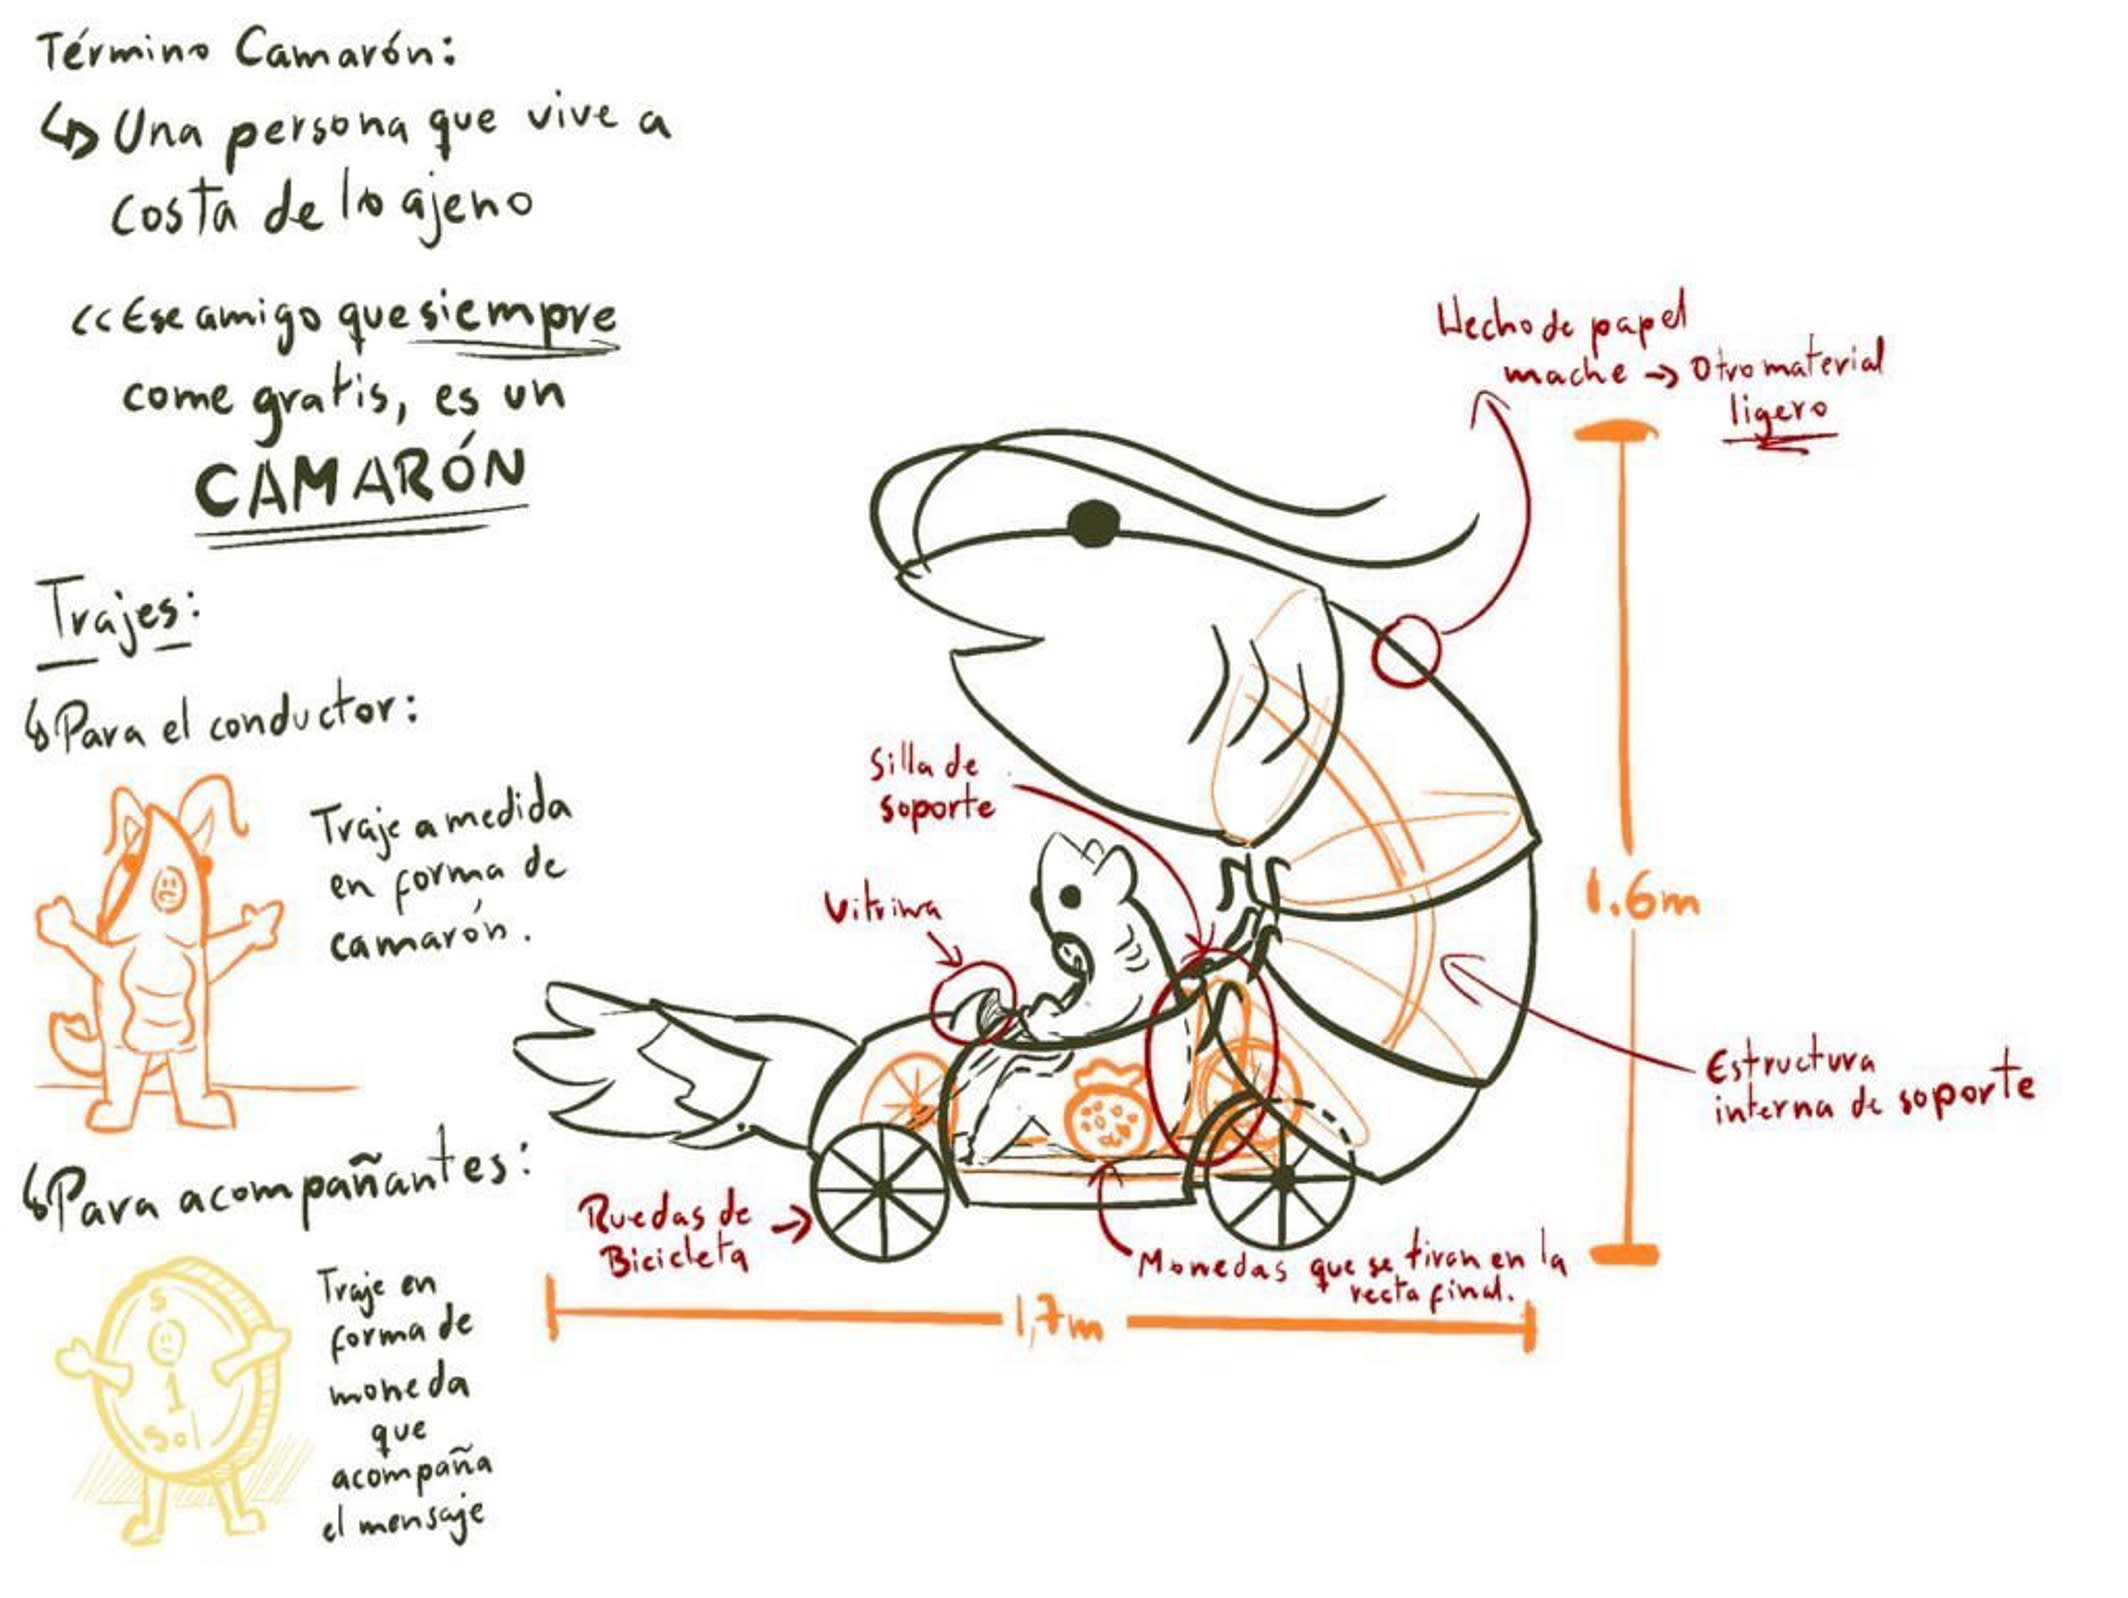 Término Camarón:
↳ Una persona que vive a
costa de lo ajeno
<<Ese amigo que siempre
come gratis, es un
CAMARÓN
Trajes:
↳ Para el conductor:
Traje a medida
en forma de
camarón.
↳ Para acompañantes:
S
1
Sol
Traje en
forma de
moneda
que
acompaña
el mensaje
Hecho de papel
mache → Otro material
ligero
Silla de
soporte
Vitrina
1.6m
Estructura
interna de soporte
Ruedas de
Bicicleta
Monedas que se tiran en la
recta final.
1,7m